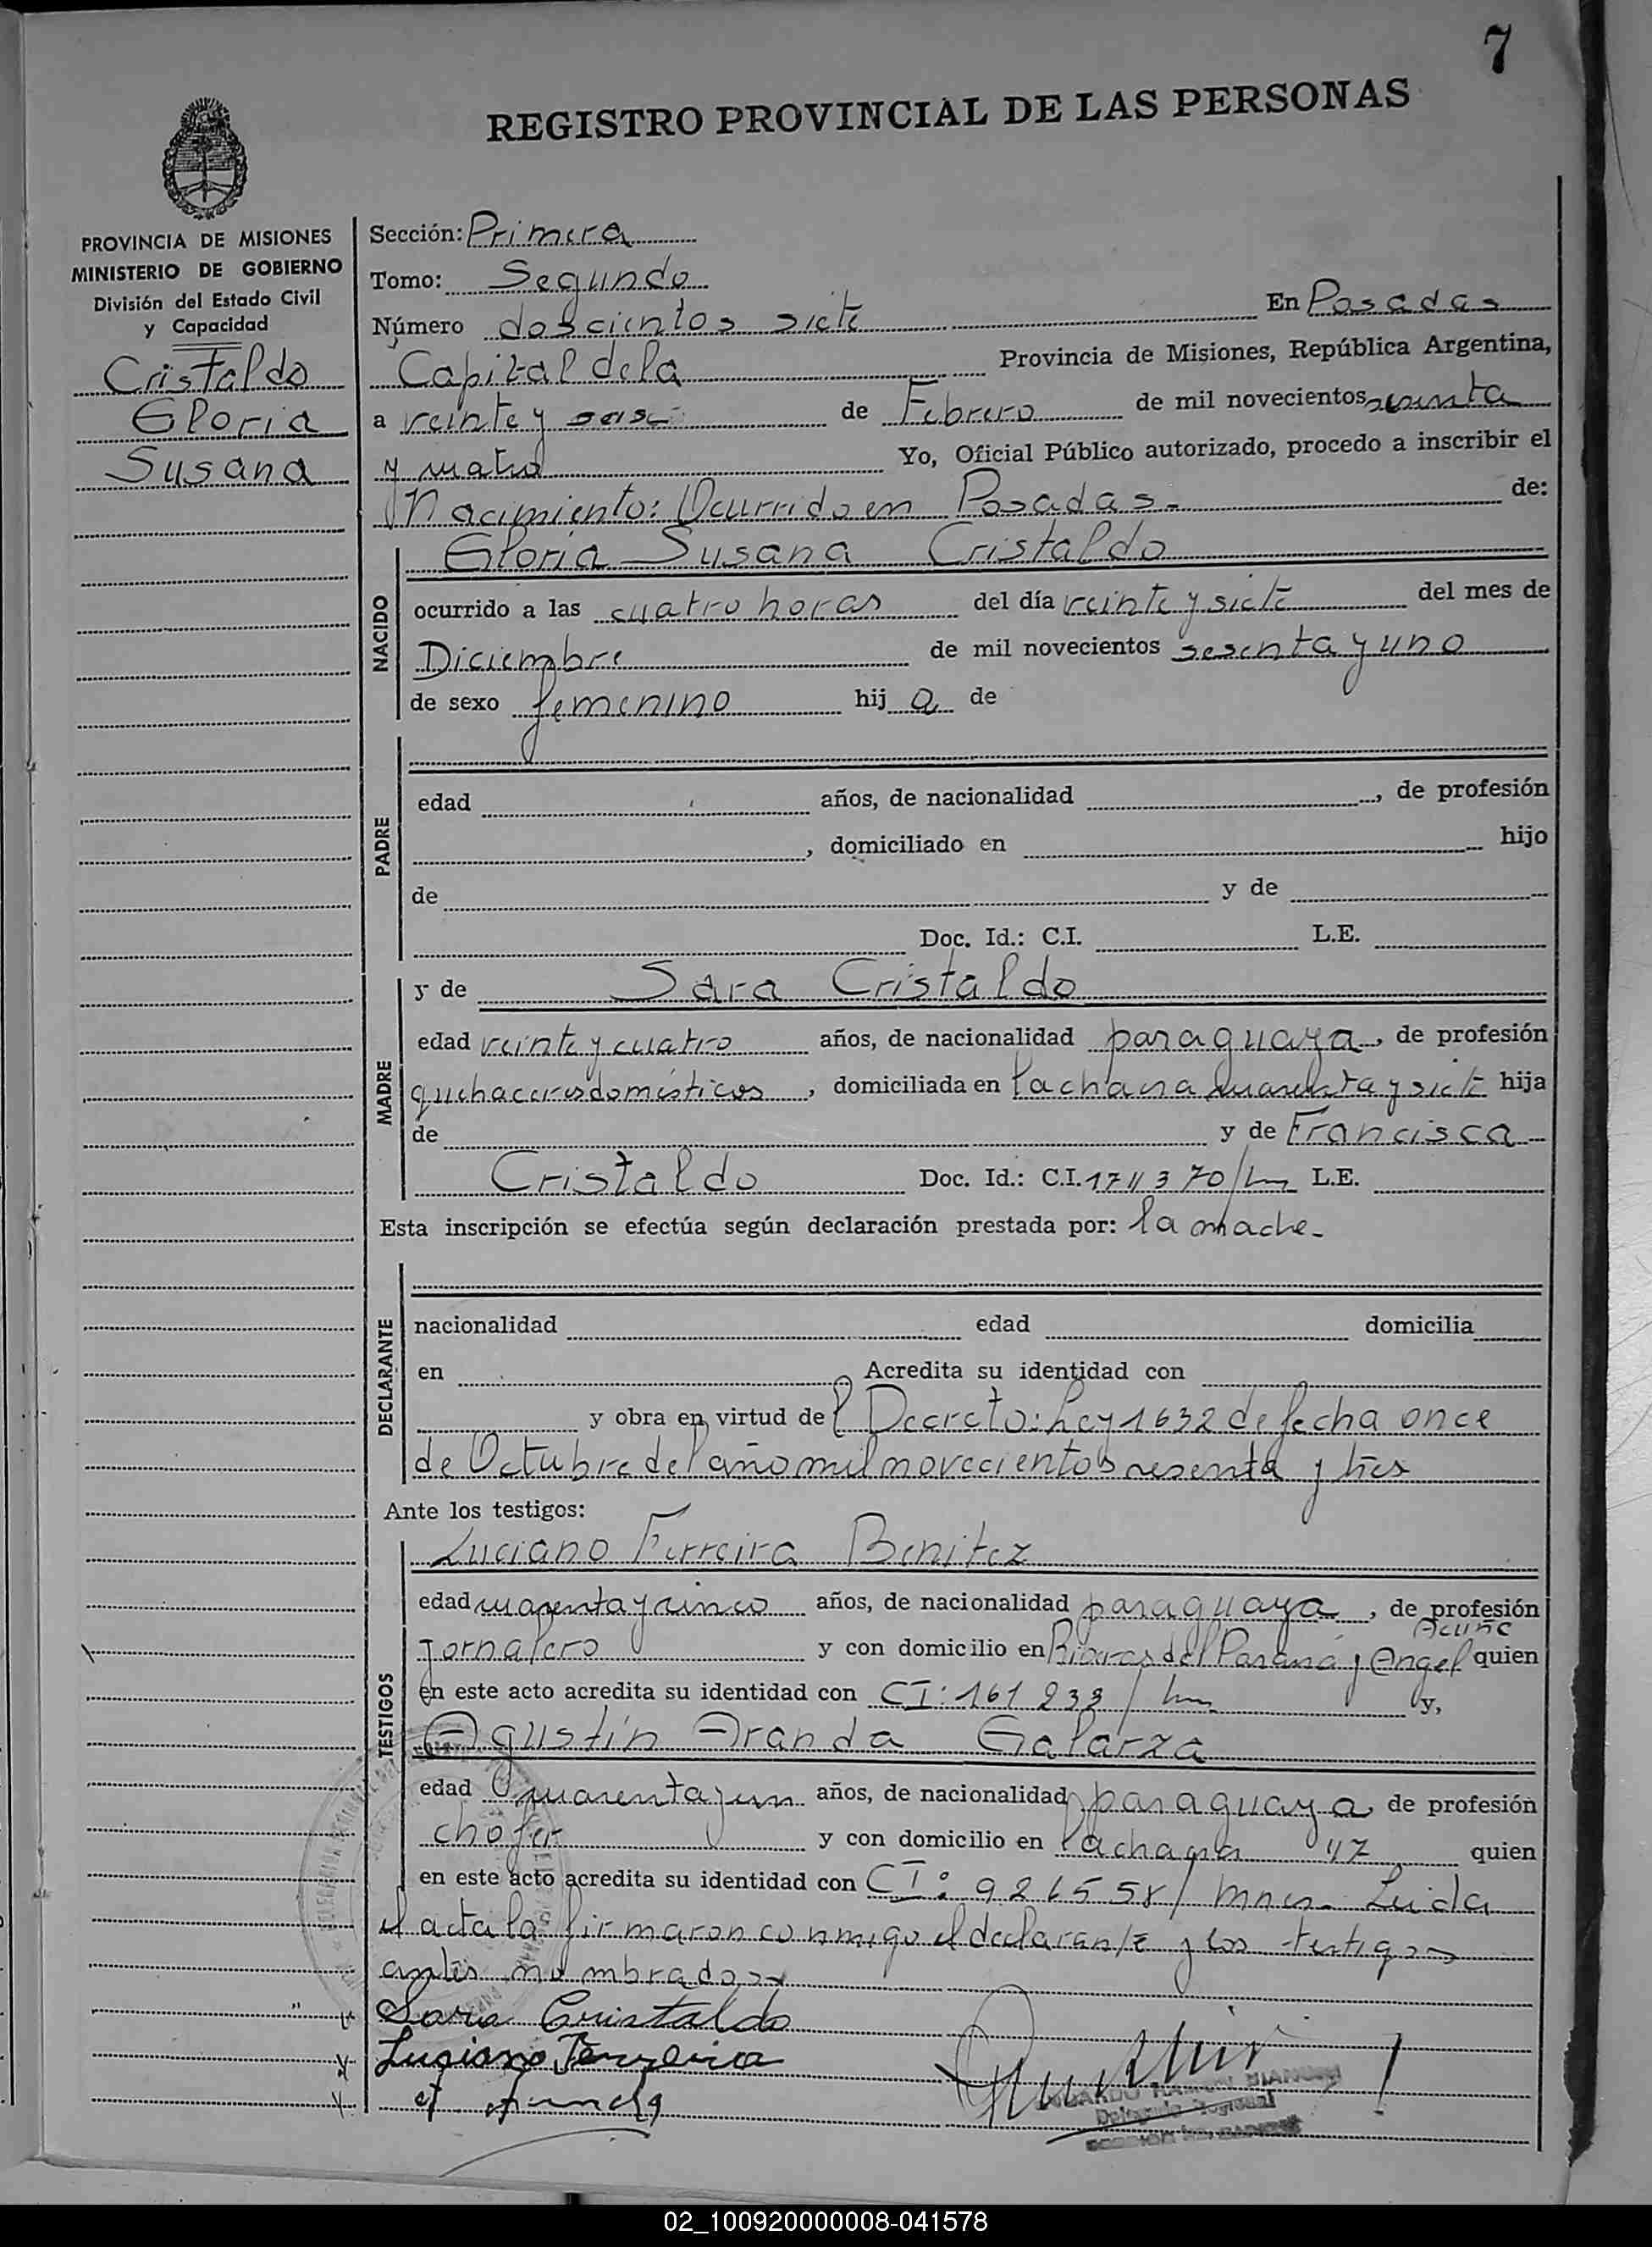 7
REGISTRO PROVINCIAL DE LAS PERSONAS
PROVINCIA DE MISIONES
MINISTERIO DE GOBIERNO
División del Estado Civil
y Capacidad
Cristaldo
Gloria
Susana
Sección: Primera
Tomo: Segundo
Número doscientos siete En Posadas
Capital de la Provincia de Misiones, República Argentina,
a veinte y seis de Febrero de mil novecientos sesenta
y cuatro Yo, Oficial Público autorizado, procedo a inscribir el
Nacimiento: Ocurrido en Posadas.- de:
NACIDO
Gloria Susana Cristaldo
ocurrido a las cuatro horas del día veinte y siete del mes de
Diciembre de mil novecientos sesenta y uno
de sexo femenino hij a de
PADRE
edad años, de nacionalidad , de profesión
, domiciliado en hijo
de y de
Doc. Id.: C.I. L.E.
MADRE
y de Sara Cristaldo
edad veinte y cuatro años, de nacionalidad paraguaya, de profesión
quehaceres domésticos, domiciliada en Cuarenta y siete hija
de y de Francisca
Cristaldo Doc. Id.: C.I. L.E.
Esta inscripción se efectúa según declaración prestada por: la madre.-
DECLARANTE
nacionalidad edad domicilia
en Acredita su identidad con
y obra en virtud del Decreto: Ley 1632 de fecha once
de Octubre del año mil novecientos sesenta y tres
Ante los testigos:
TESTIGOS
Luciano Ferreira Benitez
edad cuarenta y cinco años, de nacionalidad paraguaya, de profesión
Jornalero y con domicilio en del Paraná y Angel Acuña quien
en este acto acredita su identidad con CI: 161 233 y,
Agustín Aranda Galarza
edad cuarenta y un años, de nacionalidad paraguaya, de profesión
chofer y con domicilio en 47 quien
en este acto acredita su identidad con CI: 926558/ Mnes. Leida
el acta la firmaron conmigo el declarante y los testigos
antes nombrados
Sara Cristaldo
Luciano Ferreira
Delegado Regional
02_100920000008-041578